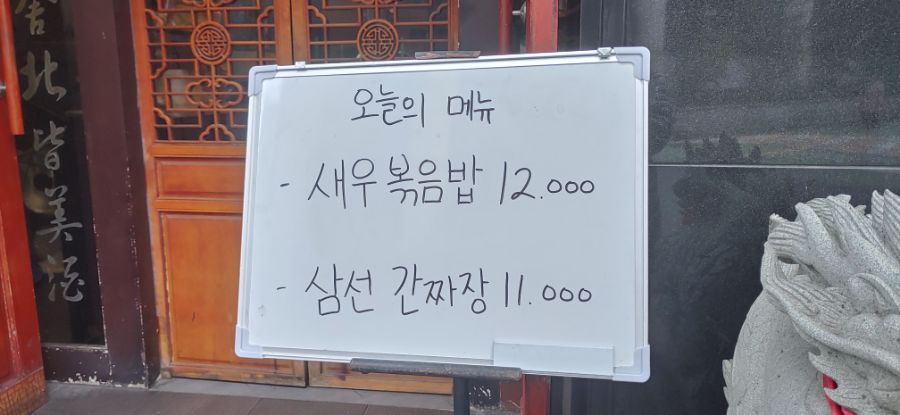 오늘의 메뉴
- 새우볶음밥 12.000
- 삼선 간짜장 11.000
北皆美酒